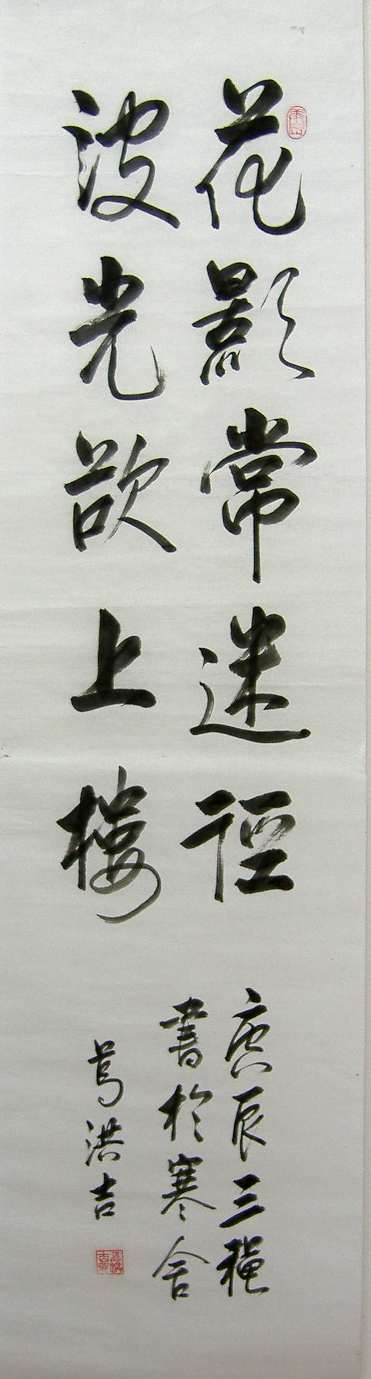 花影常迷徑
波光欲上樓
庚辰三穐
書於寒舍
洪吉